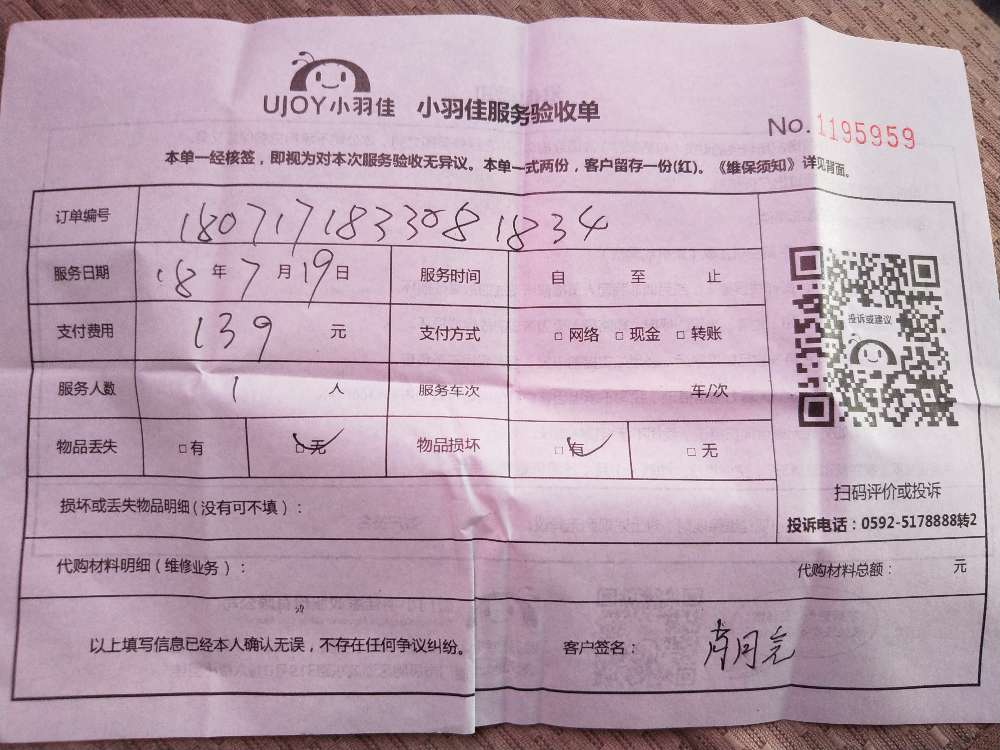 UJOY小羽佳 小羽佳服务验收单
No.1195959
本单一经核签，即视为对本次服务验收无异议。本单一式两份，客户留存一份(红)。《维保须知》详见背面。
订单编号 18071718330818834
服务日期 18年7月19日 服务时间 自 至 止
支付费用 139 元 支付方式 □网络 □现金 □转账
服务人数 1 人 服务车次 车/次
物品丢失 □有 □无 物品损坏 □有 □无
投诉或建议
扫码评价或投诉
损坏或丢失物品明细(没有可不填)：
投诉电话：0592-5178888转2
代购材料明细(维修业务)： 代购材料总额： 元
以上填写信息已经本人确认无误，不存在任何争议纠纷。 客户签名：